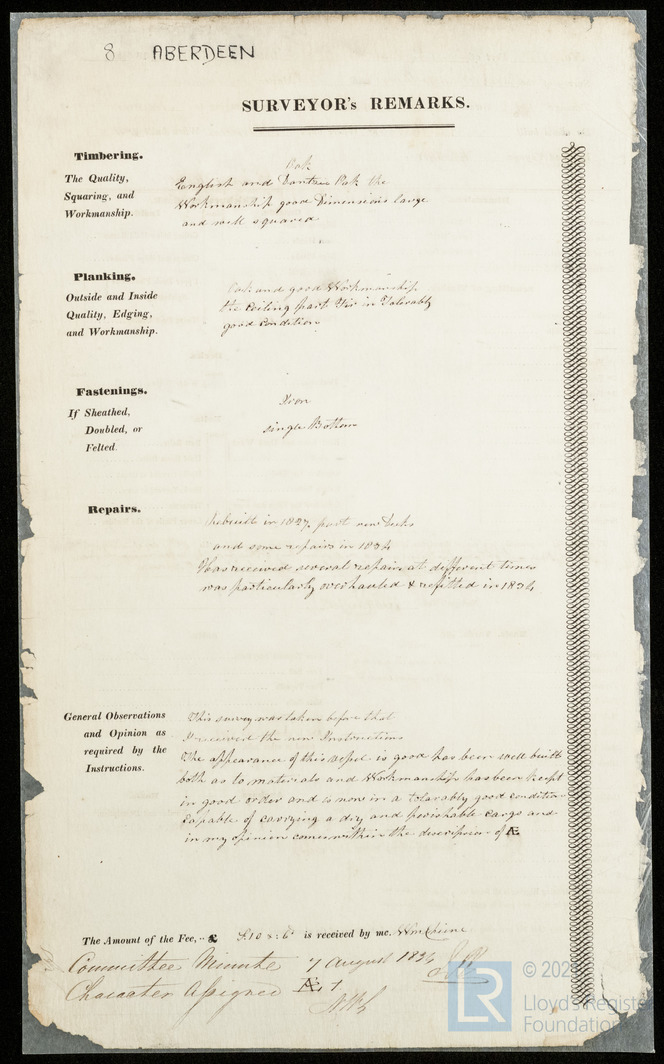 8 ABERDEEN
SURVEYOR's REMARKS.
Timbering.
The Quality,
Squaring, and
Workmanship.
Oak
English and Dantzic Oak the
Workmanship good Dimensions large
and well squared
Planking.
Outside and Inside
Quality, Edging,
and Workmanship.
Oak and good Workmanship
the Ceiling part Fir in Tolerably
good Condition
Fastenings.
If Sheathed,
Doubled, or
Felted.
Iron
single Bottom
Repairs.
Rebuilt in 1827, part new Decks
and some repairs in 1834
Has received several repairs at different times
was particularly overhauled & refitted in 1834
General Observations
and Opinion as
required by the
Instructions.
This survey was taken before that
I received the new Instructions
The appearance of this Vessel is good has been well built
both as to materials and Workmanship has been kept
in good order and is now in a tolerably good condition
Capable of carrying a dry and perishable Cargo and
in my opinion comes within the description of Æ
The Amount of the Fee, £ is received by me.
Committee Minute 7 August 1834
Character Assigned Æ 1
LR
Lloyd's Register
Foundation